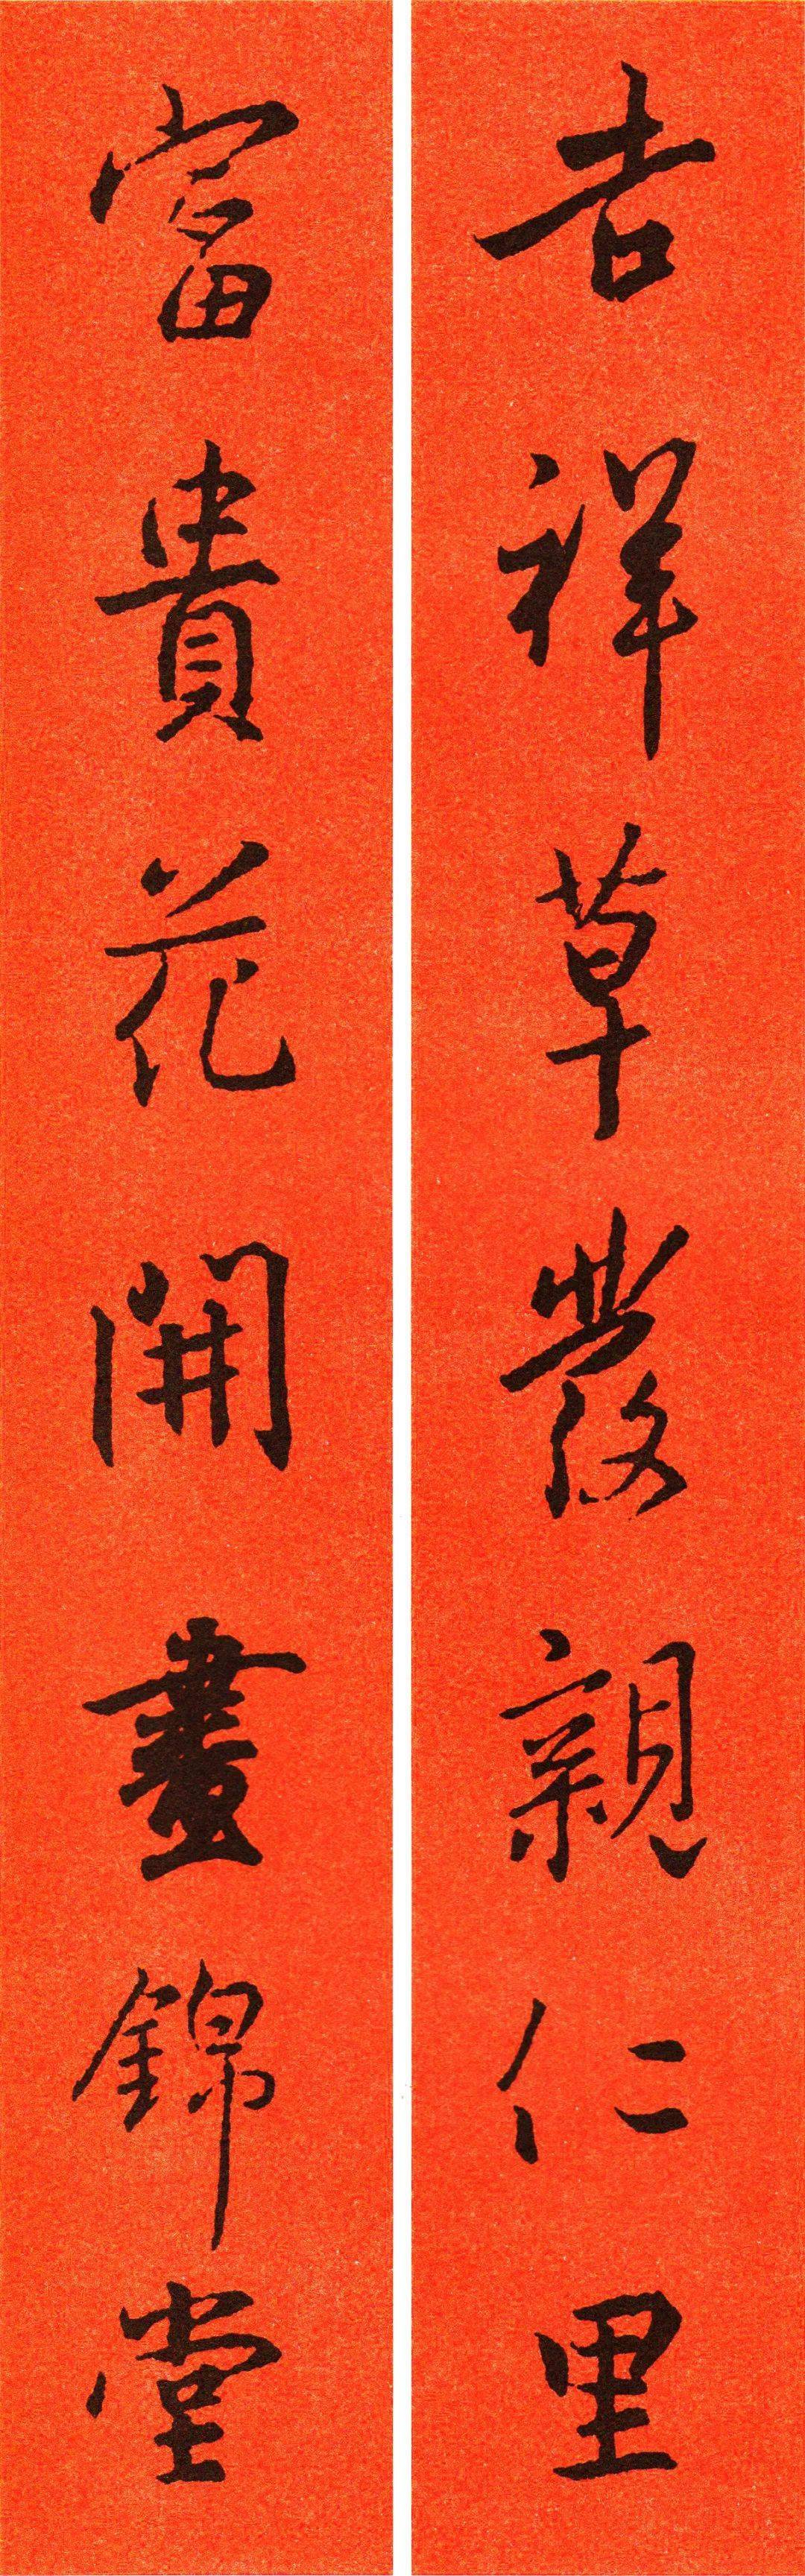 吉祥草發親仁里
富貴花開晝錦堂